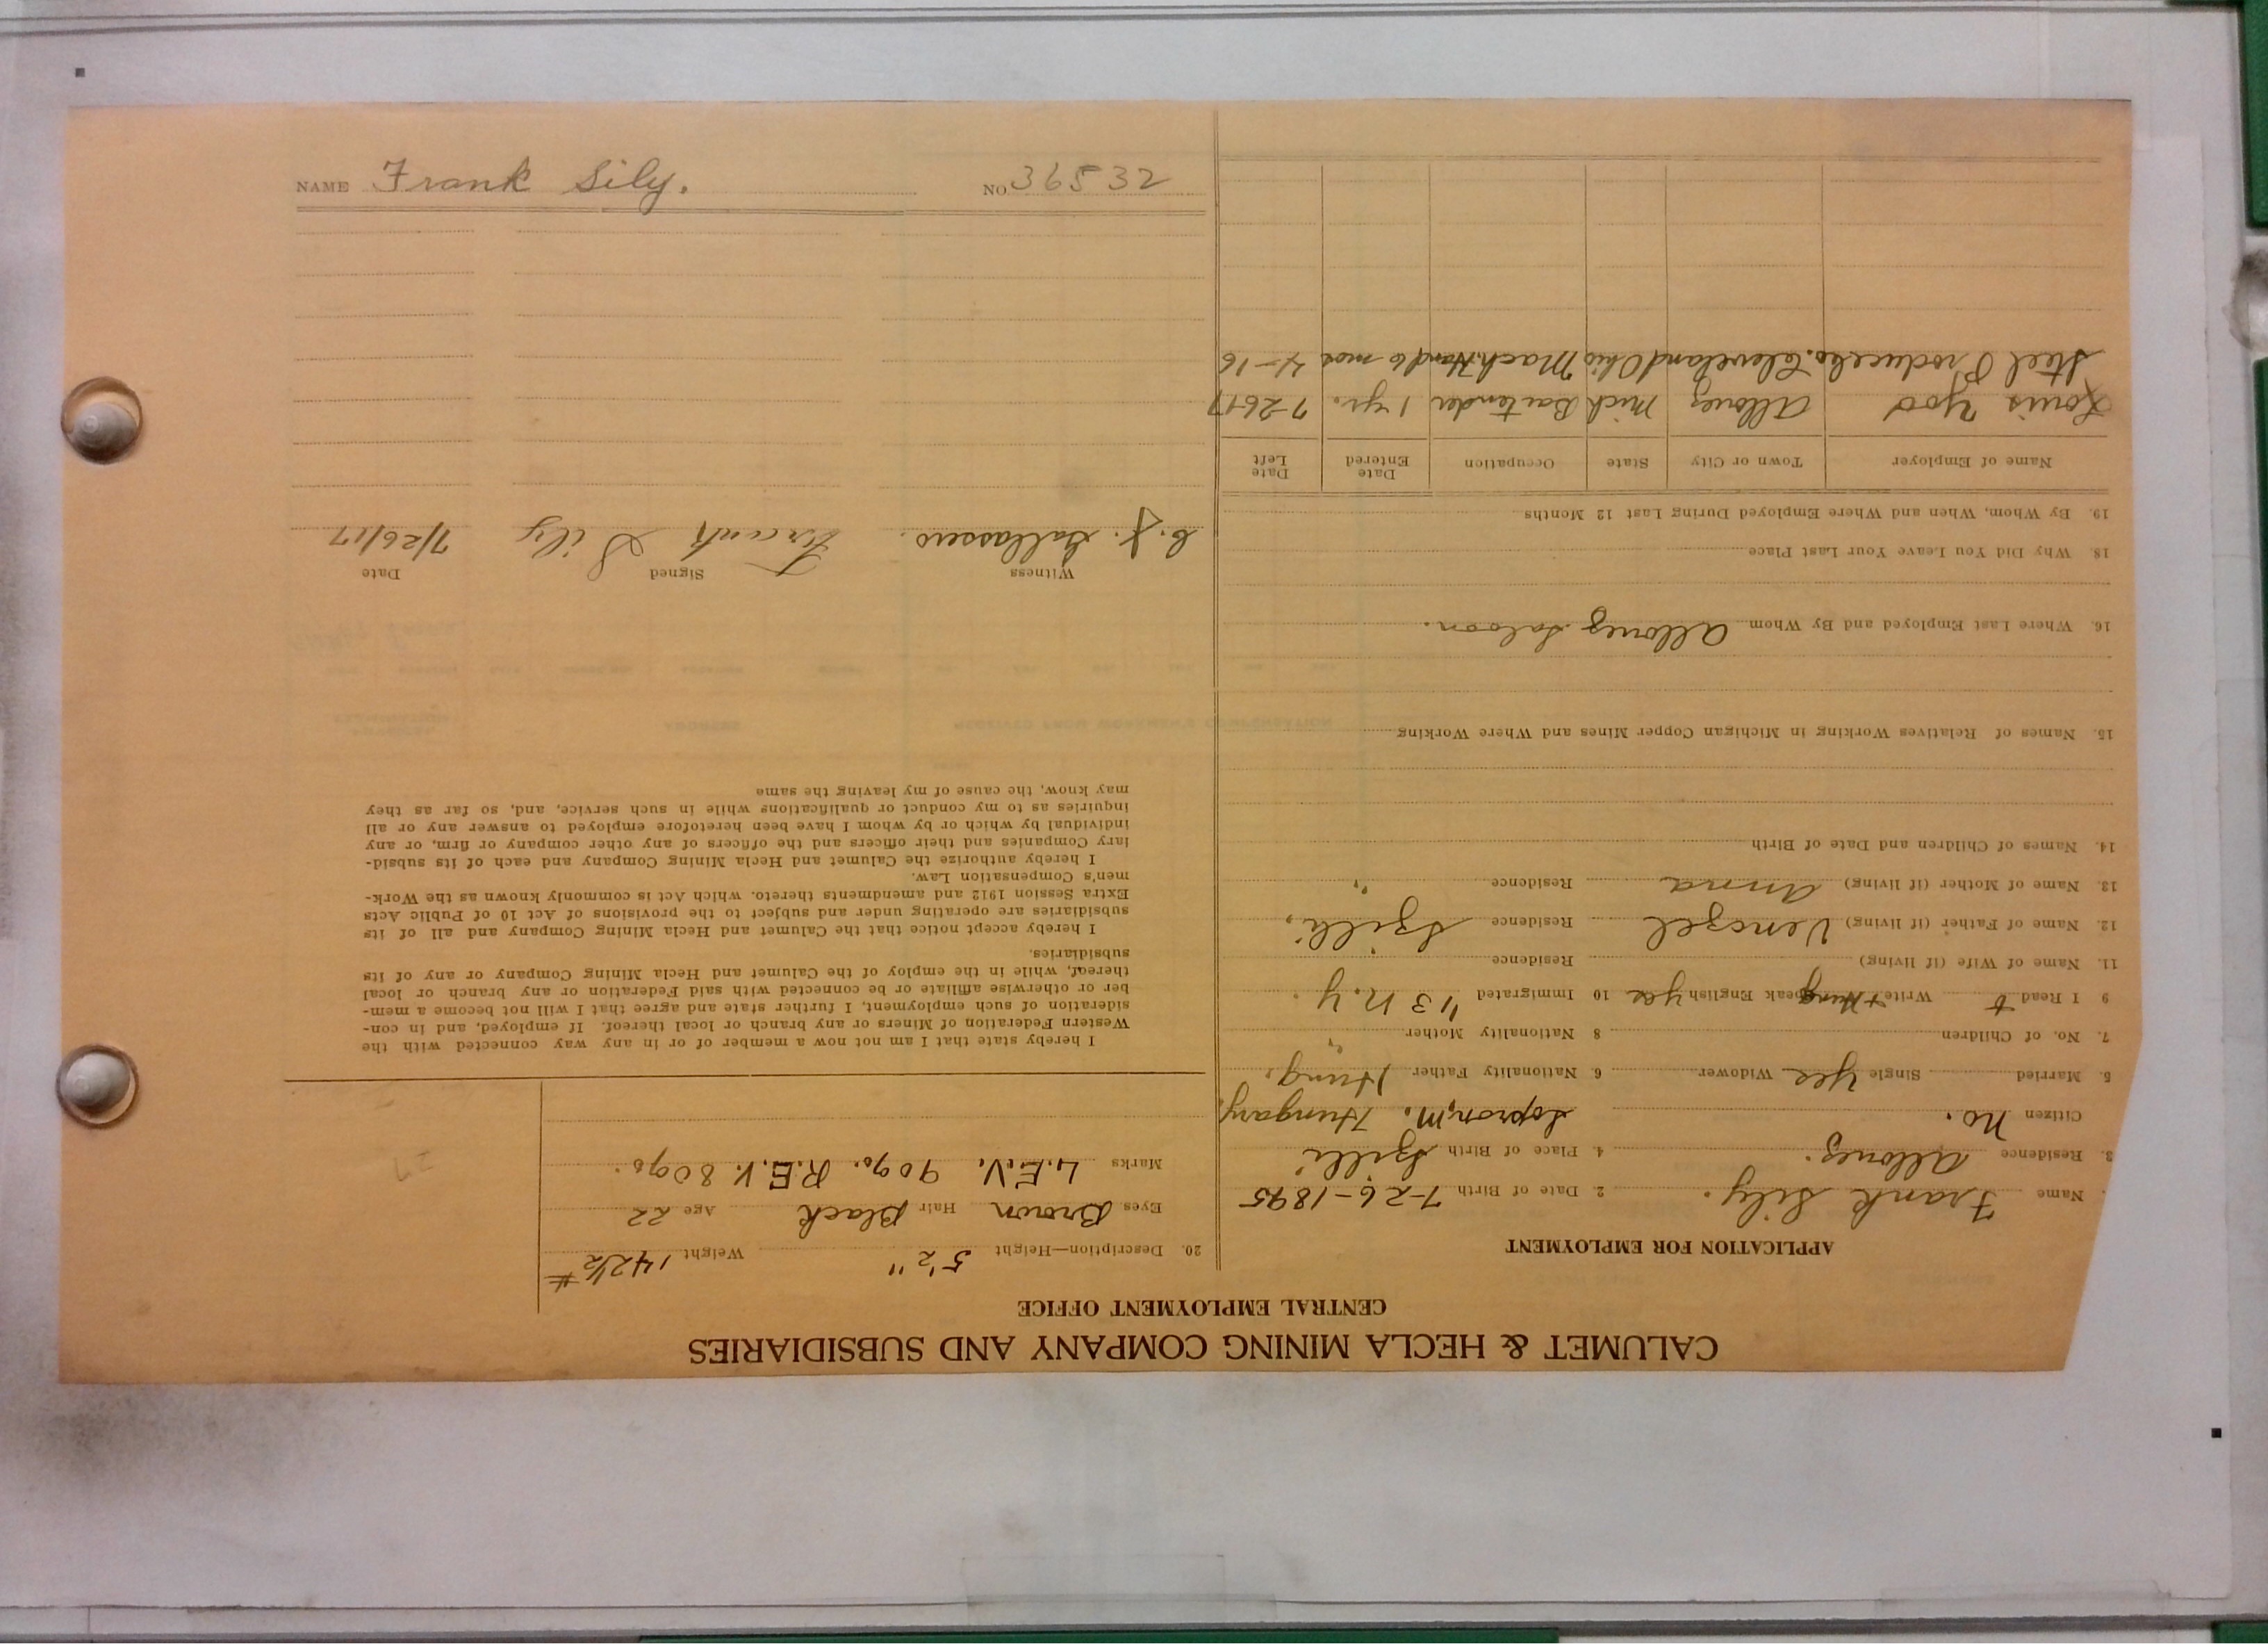 CALUMET & HECLA MINING COMPANY AND SUBSIDIARIES
CENTRAL EMPLOYMENT OFFICE
APPLICATION FOR EMPLOYMENT
Name Frank Sily. 2. Date of Birth 7-26-1895
3. Residence Allouez. 4. Place of Birth Szilli
Citizen No. Sopron, M. Hungary.
5. Married Single Yes Widower 6. Nationality Father Hung.
7. No. of Children 8 Nationality Mother "
9 I Read + Write + Hung Speak English Yes 10 Immigrated '13 N.Y.
11. Name of Wife (if living) Residence
12. Name of Father (if living) Venczel Residence Szilli,
13. Name of Mother (if living) Anna Residence "
14. Names of Children and Date of Birth
15. Names of Relatives Working in Michigan Copper Mines and Where Working
16. Where Last Employed and By Whom Allouez Saloon.
18. Why Did You Leave Your Last Place
19. By Whom, When and Where Employed During Last 12 Months
Name of Employer Town or City State Occupation Date Entered Date Left
Louis Yod Allouez Mich Bartender 1 yr. 7-26-17
Steel Produce Co. Cleveland Ohio Mach. Hand 6 mos 4-16
20. Description—Height 5'2" Weight 142½ #
Eyes Brown Hair Black Age 22
Marks L.E.V. 90%. R.E.V. 80%.
I hereby state that I am not now a member of or in any way connected with the
Western Federation of Miners or any branch or local thereof. If employed, and in con-
sideration of such employment, I further state and agree that I will not become a mem-
ber or otherwise affiliate or be connected with said Federation or any branch or local
thereof, while in the employ of the Calumet and Hecla Mining Company or any of its
subsidiaries.
I hereby accept notice that the Calumet and Hecla Mining Company and all of its
subsidiaries are operating under and subject to the provisions of Act 10 of Public Acts
Extra Session 1912 and amendments thereto. which Act is commonly known as the Work-
men's Compensation Law.
I hereby authorize the Calumet and Hecla Mining Company and each of its subsid-
iary Companies and their officers and the officers of any other company or firm, or any
individual by which or by whom I have been heretofore employed to answer any or all
inquiries as to my conduct or qualifications while in such service, and, so far as they
may know, the cause of my leaving the same
Witness Signed Date
Frank Sily 7/26/17
NAME Frank Sily. NO. 36532